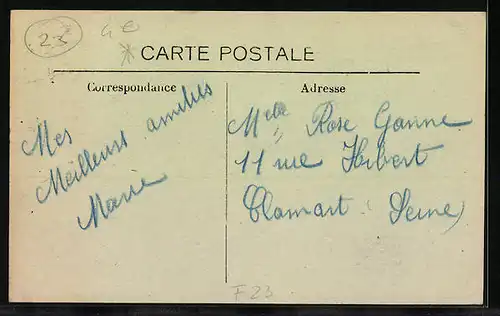 23
CARTE POSTALE
Correspondance
Adresse
Mes
Meilleures amitiés
Marie
Melle Rose Ganne
11 rue Hébert
Clamart (Seine)
F 23